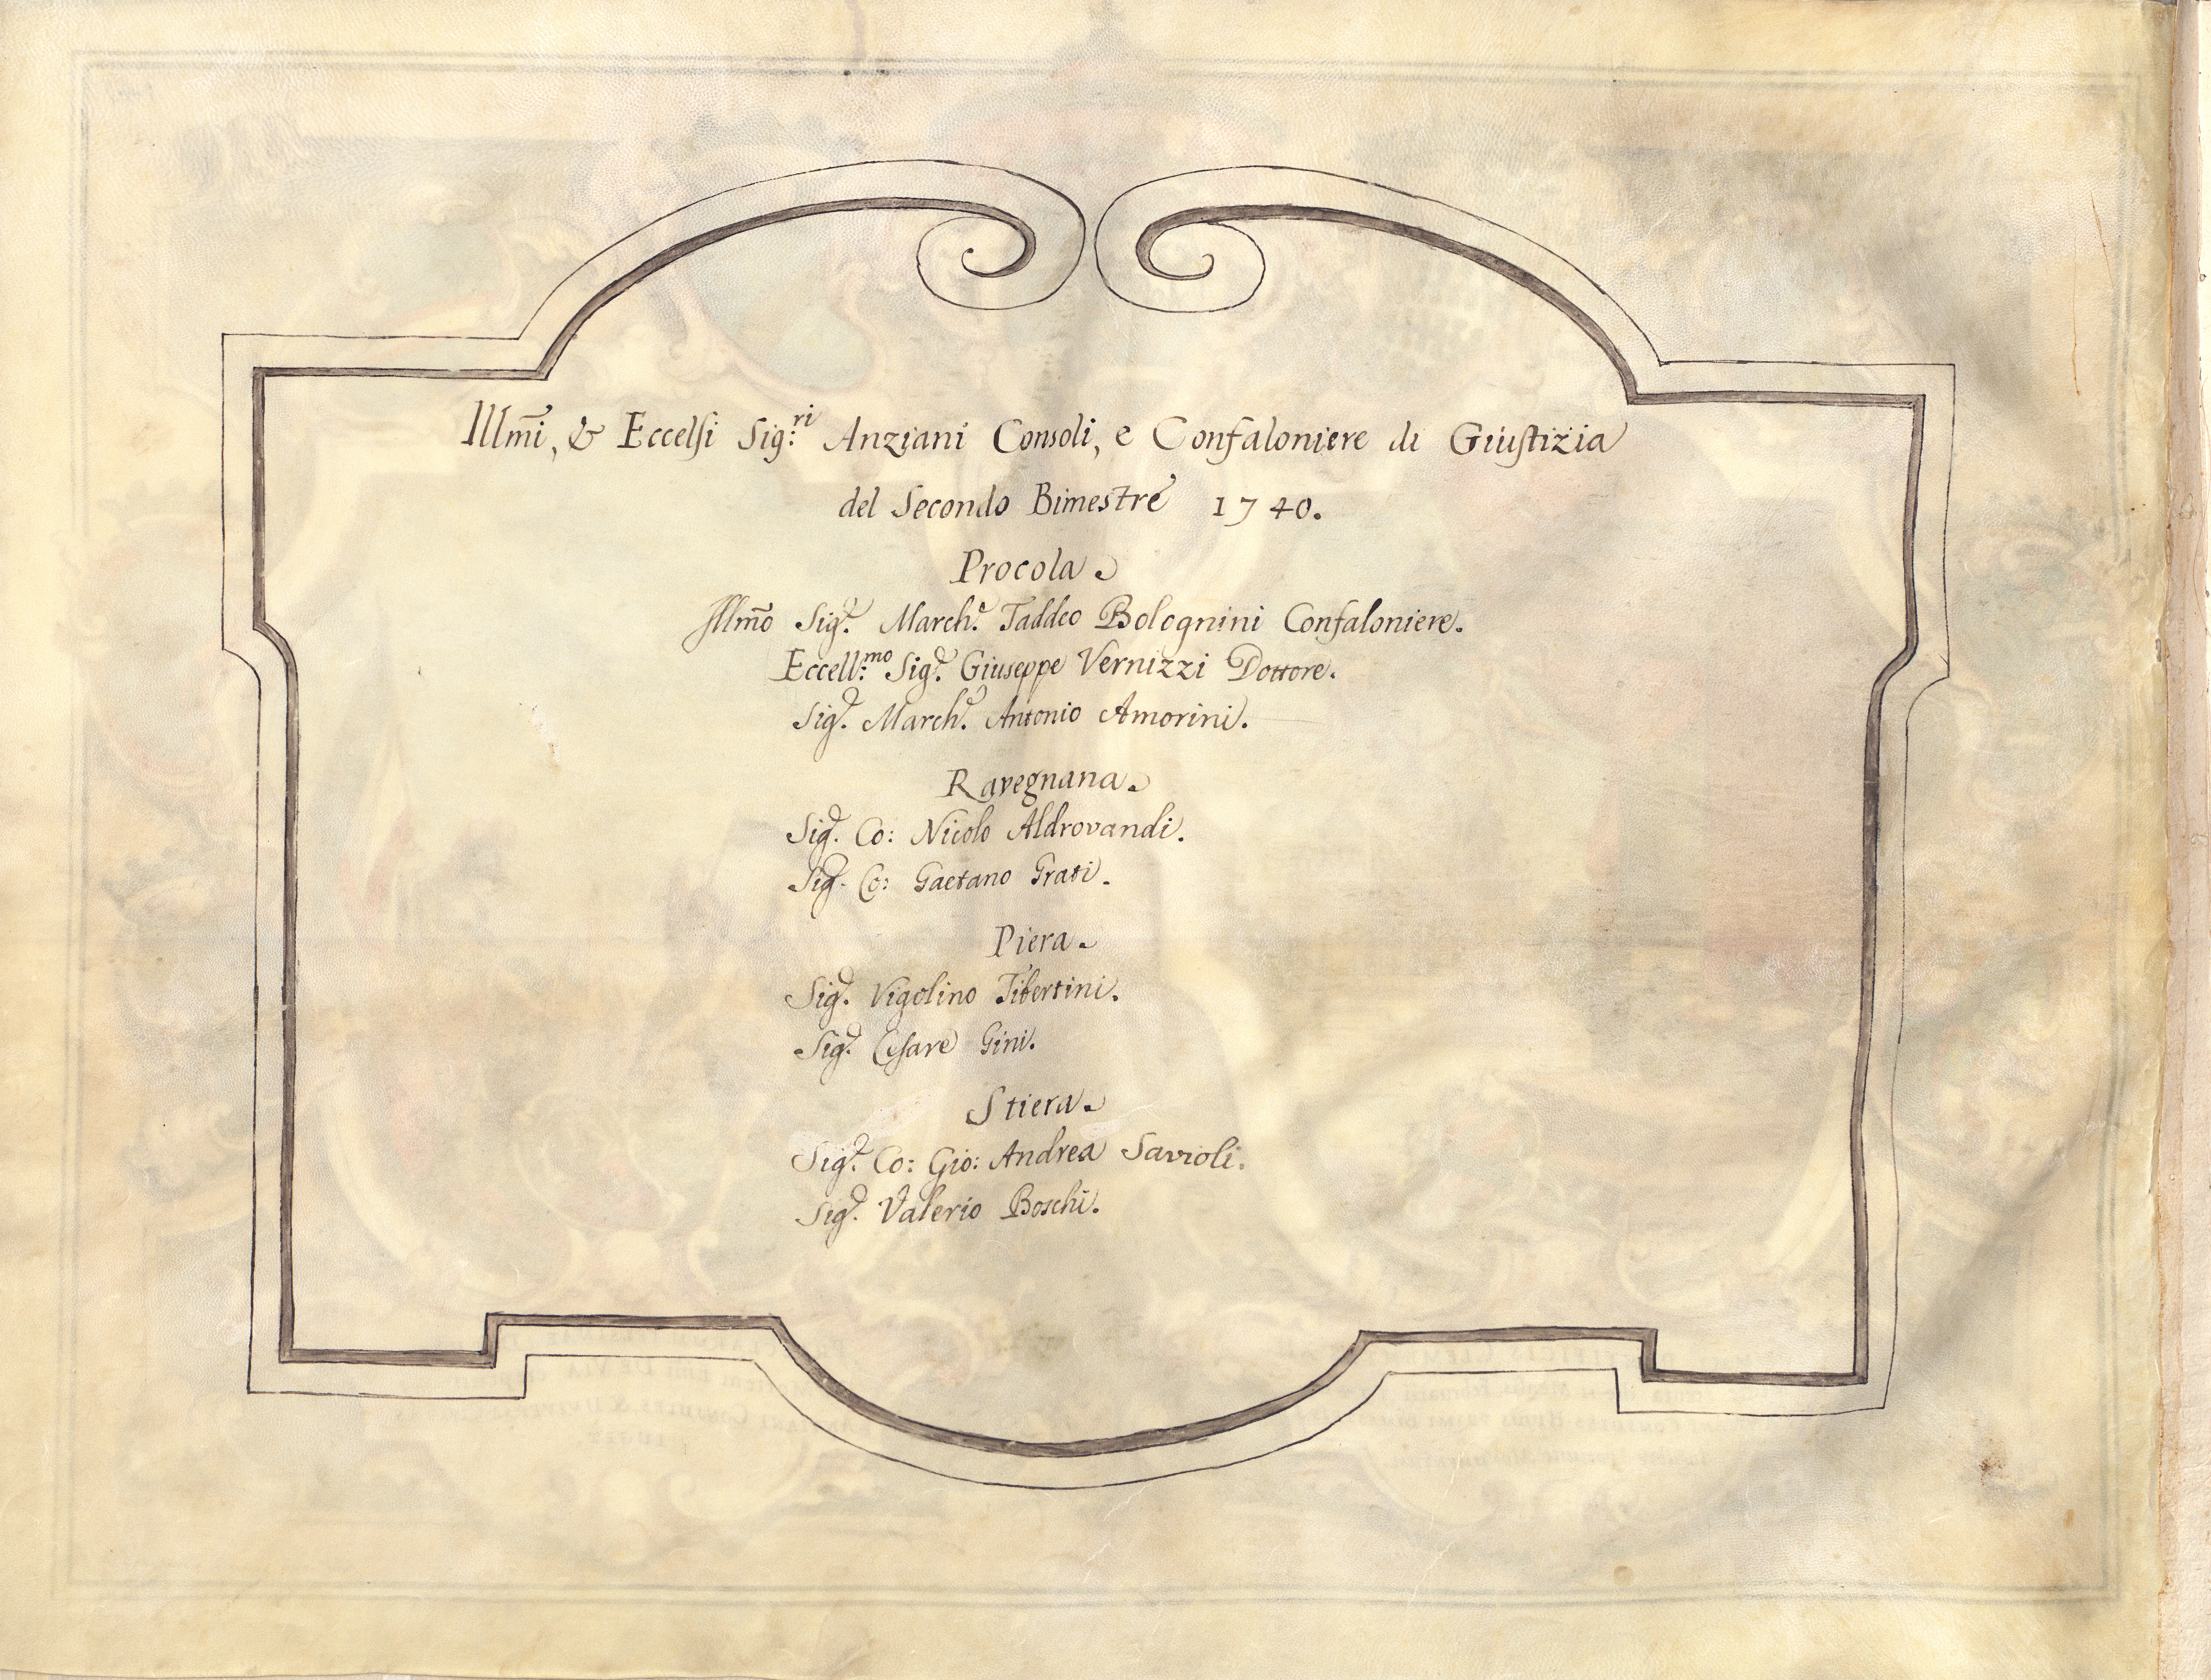 Illm̃i, & Eccelsi Sig:ri Anziani Consoli, e Confaloniere di Giustizia
del Secondo Bimestre 1740.
Procola.
Illm̃o Sig.r March.e Taddeo Bolognini Confaloniere.
Eccell:mo Sig.r Giuseppe Vernizzi Dottore.
Sig.r March.e Antonio Amorini.
Ravegnana.
Sig.r Co: Nicolo Aldrovandi.
Sig.r Co: Gaetano Grati.
Piera.
Sig.r Vigolino Tibertini.
Sig.r Cesare Gini.
Stiera.
Sig.r Co: Gio: Andrea Savioli.
Sig.r Valerio Boschi.